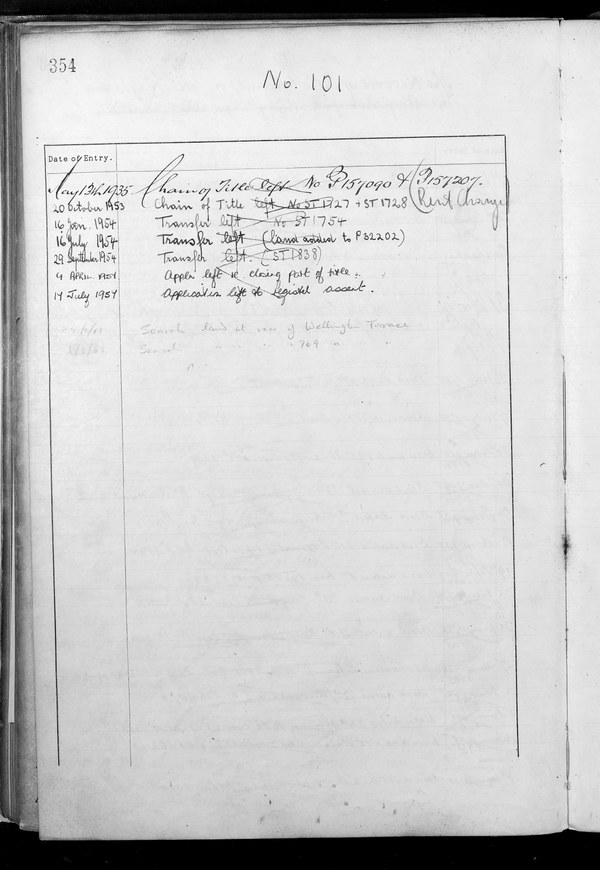 354
No. 101
Date of Entry.
May 13th 1935 Chain of Title left No P157090 & P157207.
20 October 1953 Chain of Title left No ST1727 + ST1728 (Rent Charge)
16 Jan. 1954 Transfer left No ST1754
16 July 1954 Transfer left (land added to P32202)
29 September 1954 Transfer left. (ST1838)
4 April 1957 Appln left re closing part of title.
17 July 1957 Application left to register assent.
Search land at rear of Wellington Terrace
Search " " " " 769